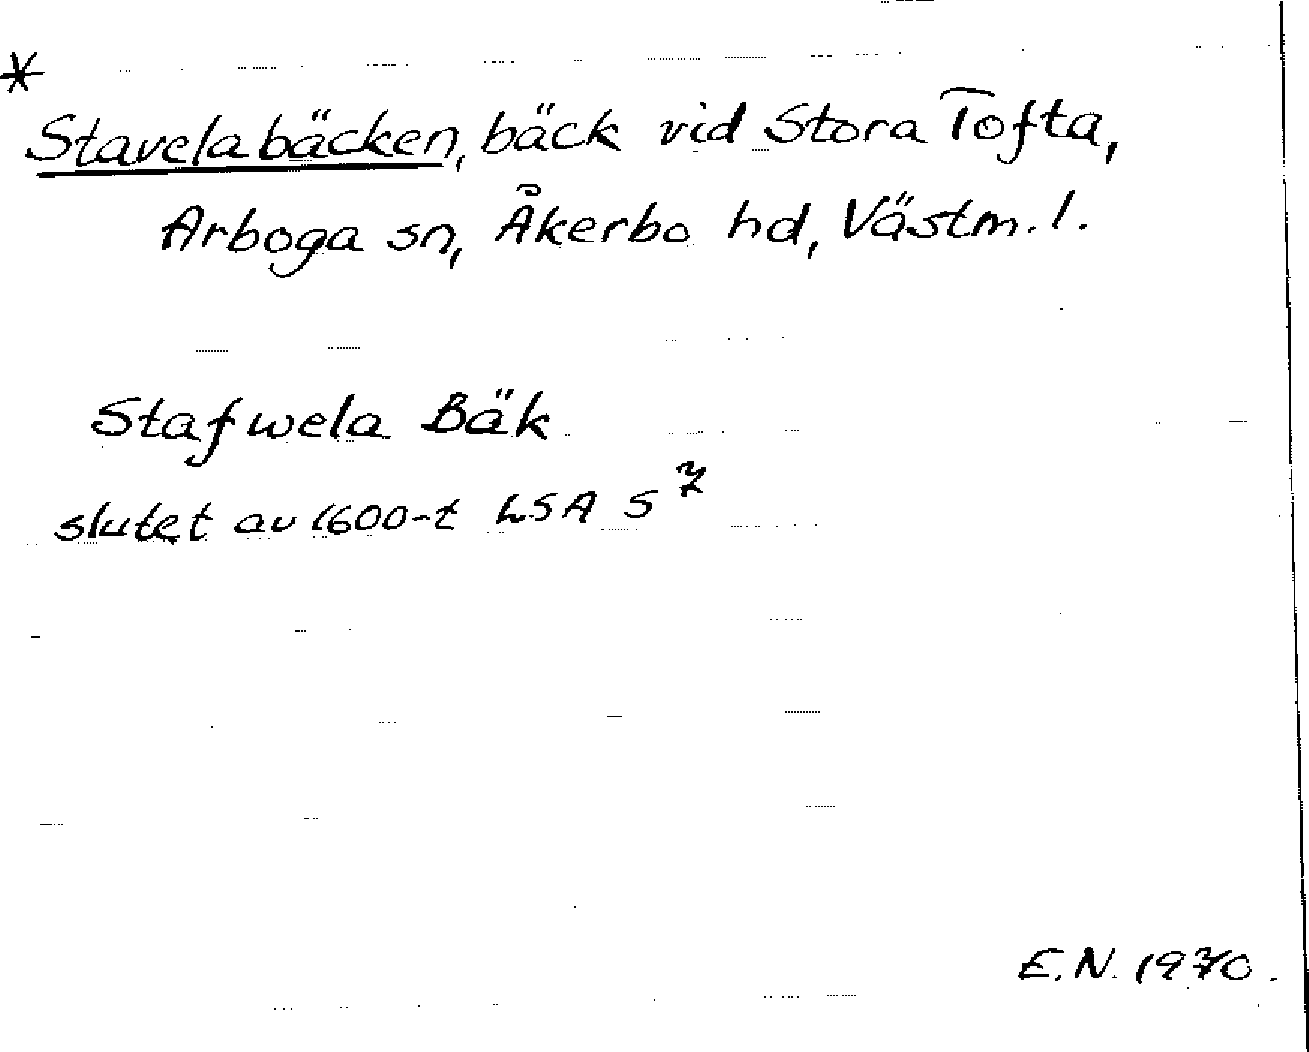 *
Stavelabäcken, bäck vid Stora Tofta,
Arboga sn, Åkerbo hd, Västm. l.
Stafwela Bäk
slutet av 1600-t LSA S 7
E.N. 1970.